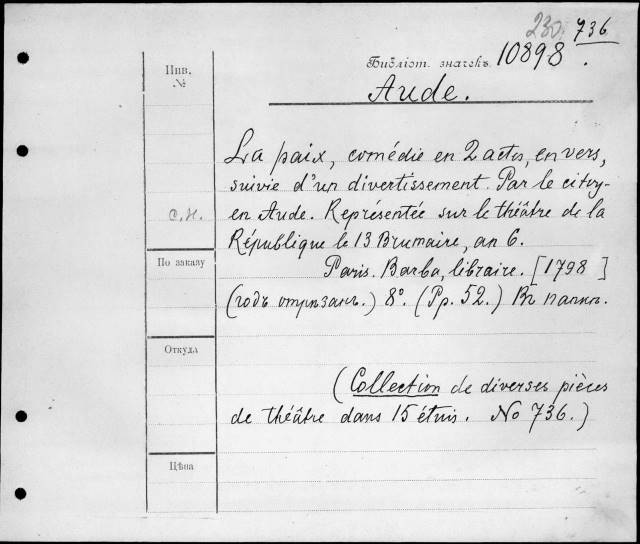 230. 736
Инв. №
Библіот. значекъ 10898.
Aude.
La paix, comédie en 2 actes, en vers,
suivie d'un divertissement. Par le citoy-
en Aude. Représentée sur le théâtre de la
République le 13 Brumaire, an 6.
С.Н.
По заказу
Paris. Barba, libraire. [1798]
(годъ отрѣзанъ.) 8°. (Pp. 52.) Въ папкѣ.
Откуда
(Collection de diverses pièces
de théâtre dans 15 étuis. No 736.)
Цѣна